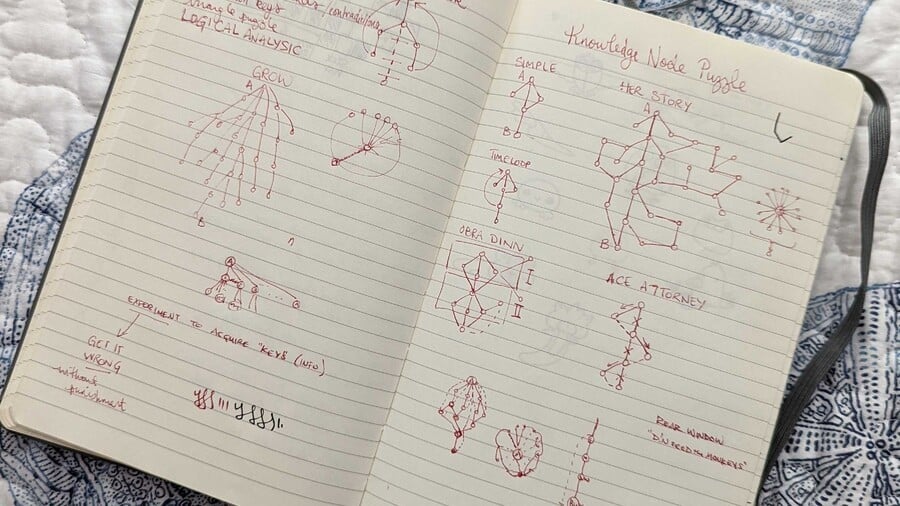 LOGICAL ANALYSIC
GROW
A
B
n
A
EXPERIMENT TO ACQUIRE "KEYS" (INFO)
GET IT
WRONG
without
punishment
Knowledge Node Puzzle
SIMPLE
A
B
HER STORY
A
B
TIMELOOP
OBRA DINN
I
II
ACE ATTORNEY
REAR WINDOW
"D'N FEED THE MONKEYS"